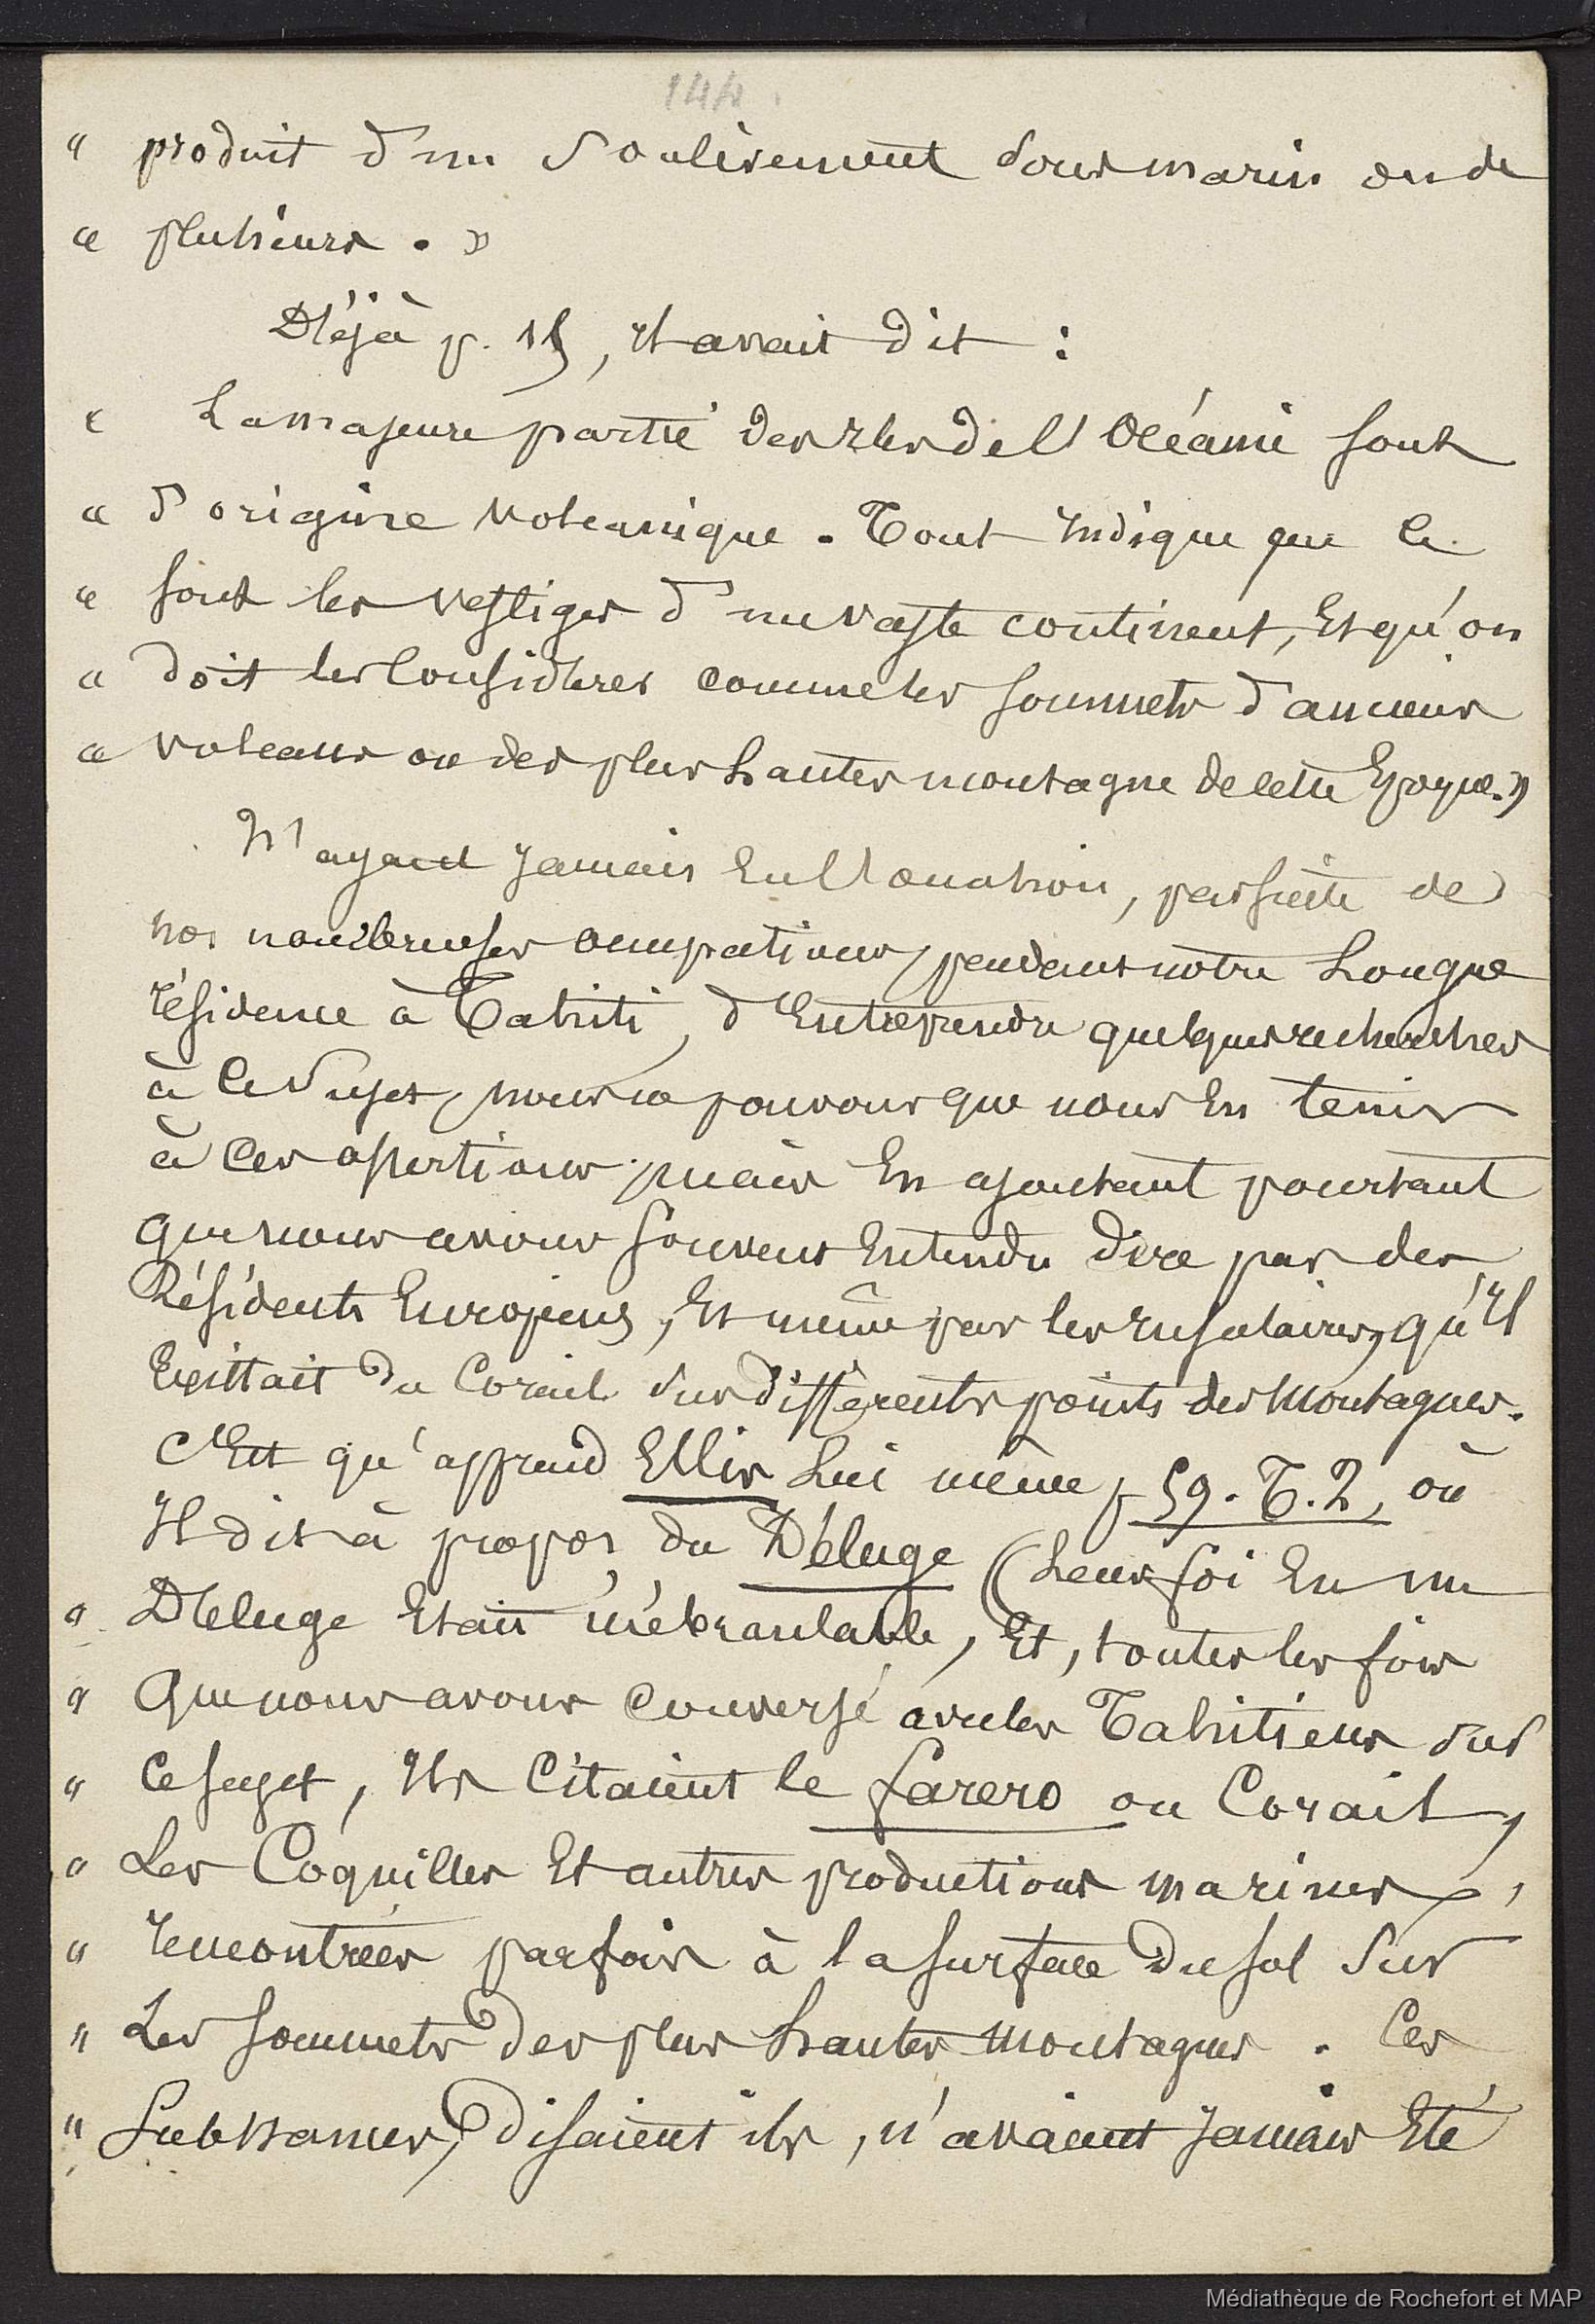 144.
" produit d'un Soulèvement sous marin ou de
" plusieurs. »
Déjà p. 15, il avait dit :
" La majeure partie des Iles de l'Océanie sont
" d'origine volcanique. Tout indique que ce
" sont les vestiges d'un vaste continent, et qu'on
" doit les Considérer comme les sommets d'anciens
" volcans ou des plus hautes montagne de cette Epoque. »
N'ayant jamais eu l'occasion, par suite de
nos nombreuses occupations, pendant notre longue
résidence à Tahiti, d'entreprendre quelques recherches
à ce Sujet, nous ne pouvons que nous en tenir
à ces assertions, mais en ajoutant pourtant
que nous avons souvent entendu dire par des
Résidents Européens, et même par les Insulaires, qu'il
existait du Corail sur différents points des montagnes.
C'est qu'apprend Ellis lui même p 59. T. 2, où
il dit à propos du Déluge (Leur foi en un
" Déluge était inébranlable, et, toutes les fois
" Que nous avons conversé avec les Tahitiens sur
" Ce sujet, ils citaient le farero ou Corail,
" Les Coquilles et autres productions marines,
" rencontrées parfois à la surface du sol sur
" Les sommets des plus hautes montagnes. Ces
" Substances, disaient ils, n'avaient jamais été
Médiathèque de Rochefort et MAP